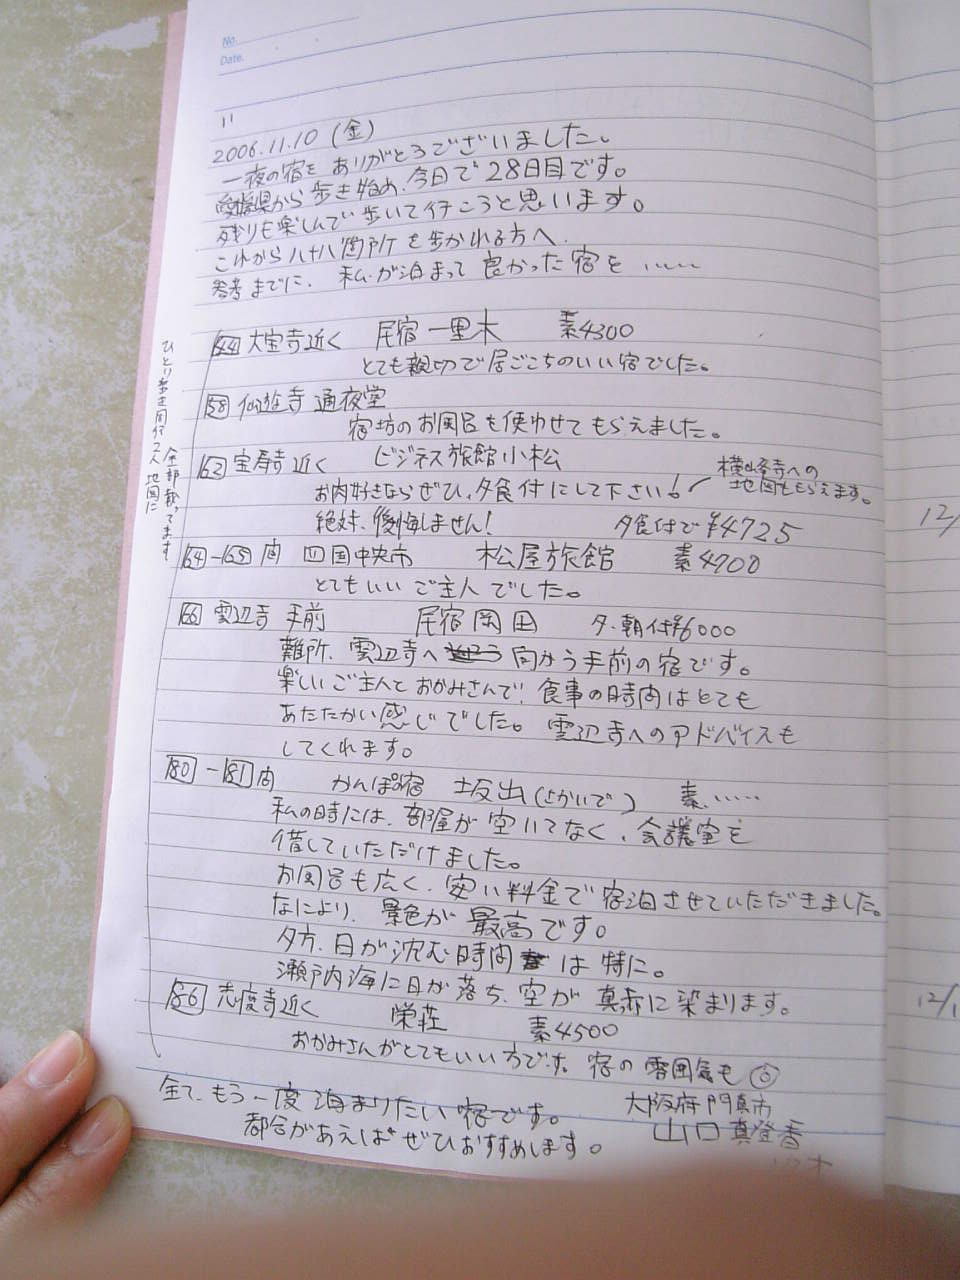 No.
Date.
11
2006.11.10 (金)
一夜の宿を ありがとうございました。
愛媛県から 歩き始め、今日で 28日目です。
残りも楽しんで 歩いて行こうと思います。
これから 八十八箇所を歩かれる方へ、
参考までに、私が泊まって 良かった宿を ……
44 大宝寺近く 民宿 一里木 素4300
とても親切で居ごこちのいい宿でした。
58 仙遊寺 通夜堂
宿坊のお風呂も使わせてもらえました。
62 宝寿寺近く ビジネス旅館小松
横峰寺への
地図ももらえます。
お肉好きならぜひ、夕食付にして下さい!
絶対、後悔しません!
夕食付で ¥4725
64-65間 四国中央市 松屋旅館 素4900
とてもいい ご主人でした。
66 雲辺寺 手前 民宿岡田 夕・朝付¥6000
難所、雲辺寺へ 向かう手前の宿です。
楽しいご主人とおかみさんで! 食事の時間はとても
あたたかい感じでした。 雲辺寺へのアドバイスも
してくれます。
80-81間 かんぽの宿 坂出(さかいで) 素……
私の時には、部屋が空いてなく、会議室を
借していただけました。
お風呂も広く、安い料金で宿泊させていただきました。
なにより、景色が最高です。
夕方、日が沈む時間 は 特に。
瀬戸内海に日が落ち、空が 真赤に染まります。
86 志度寺近く 栄荘 素4500
おかみさんがとてもいい方です。宿の雰囲気も◎
全て、もう一度 泊まりたい宿です。
都合があえば ぜひおすすめします。
大阪府門真市
山口 真登香
ひとり歩き同行2人 地図に
全部載ってます
12/
12/1